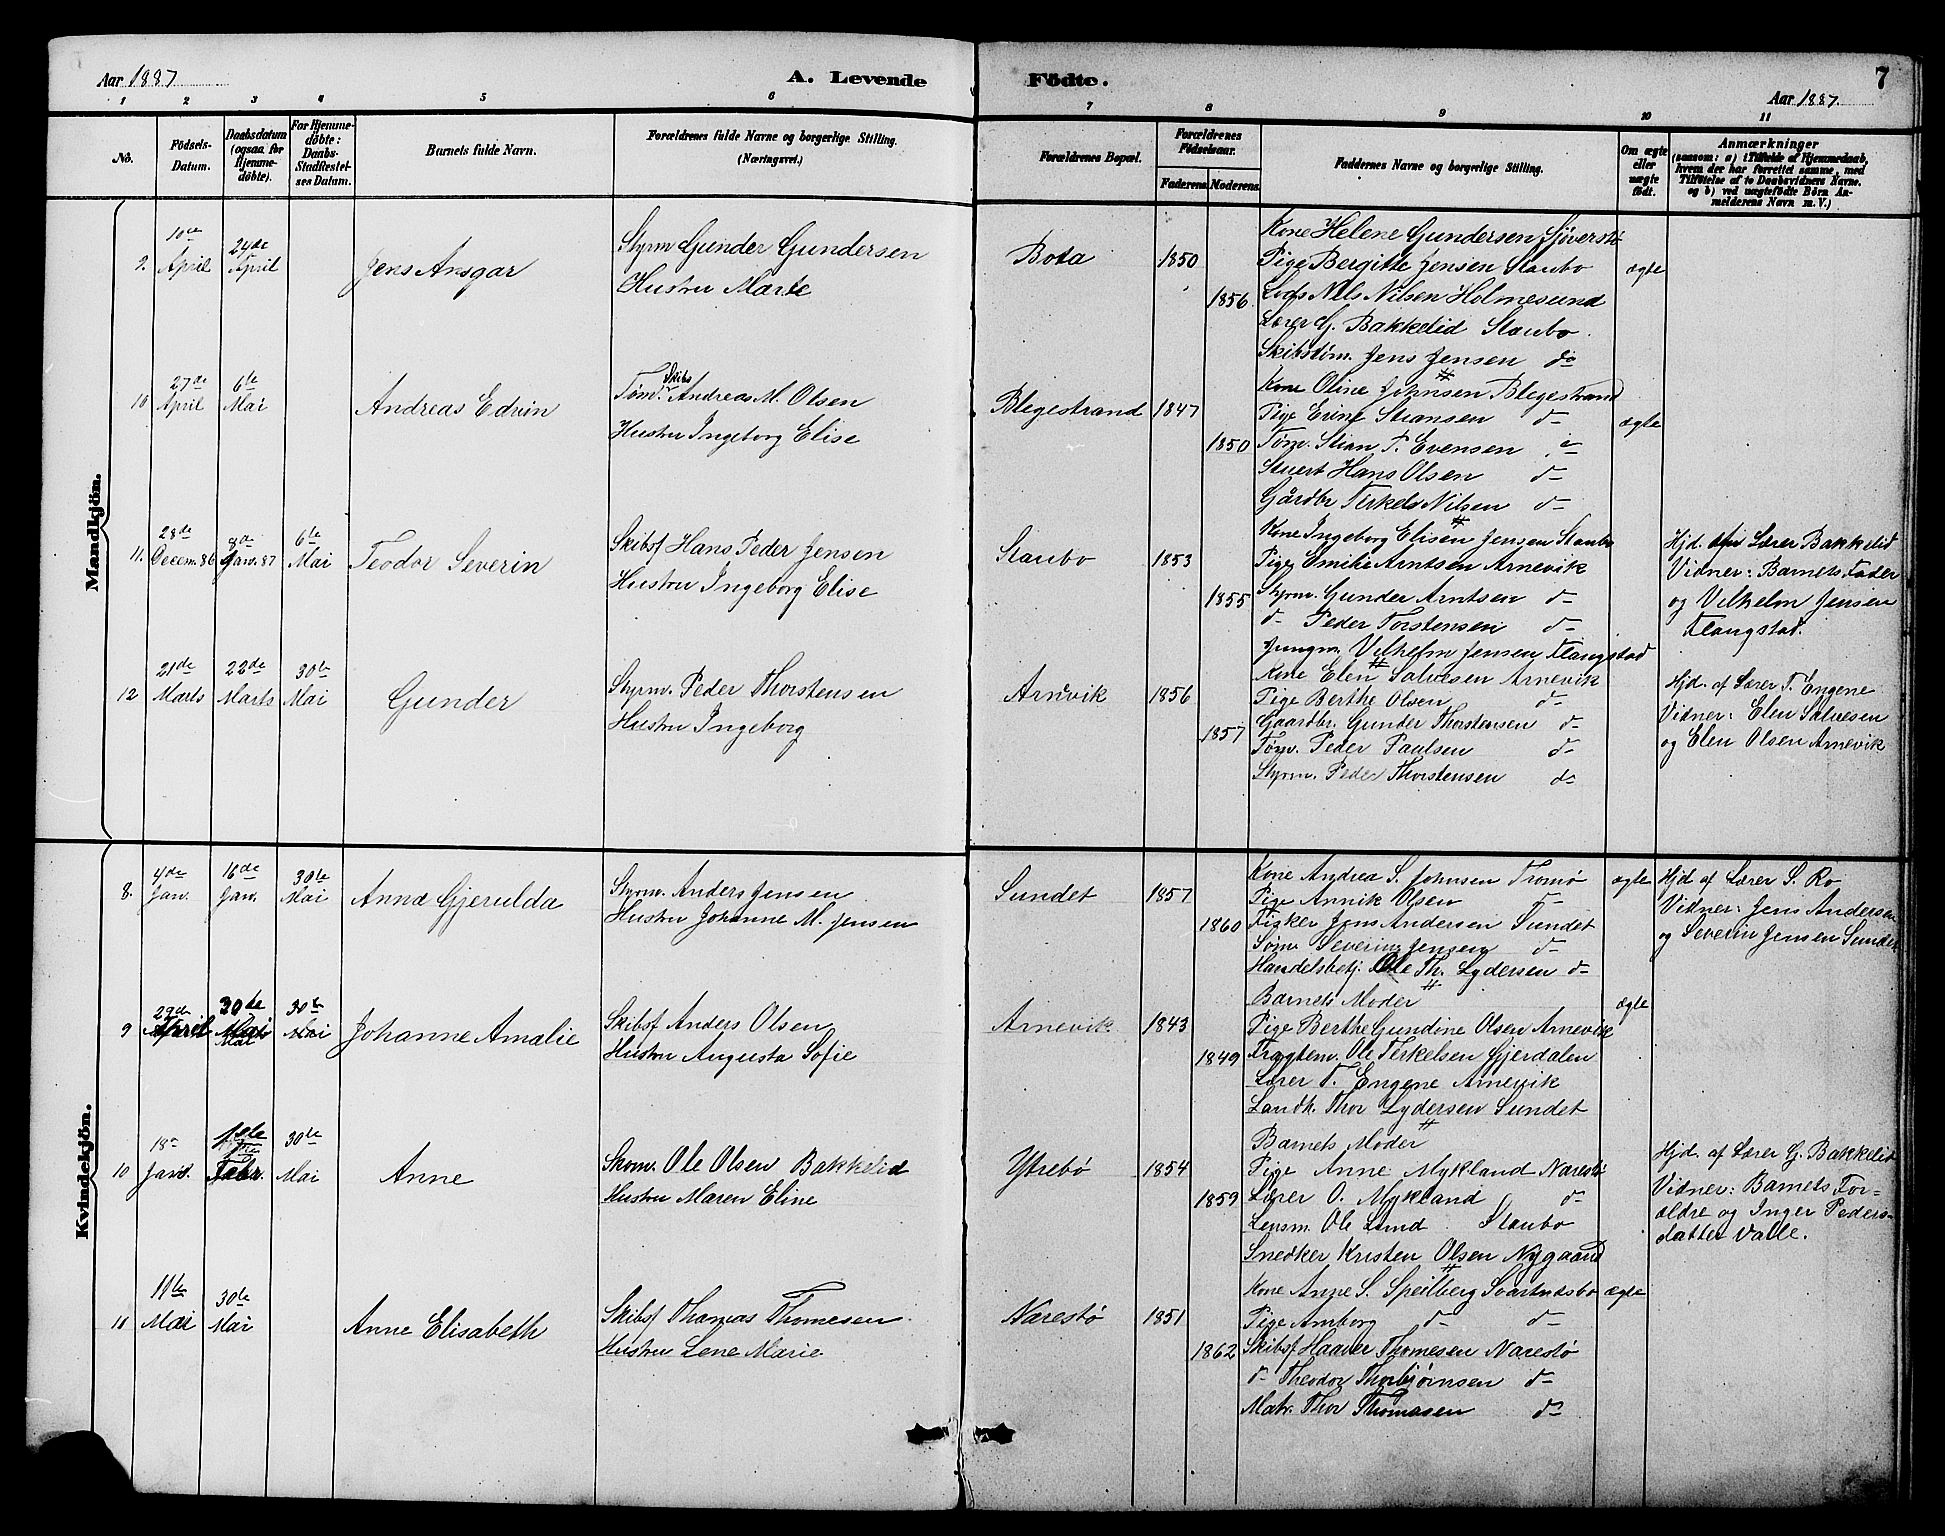 Aar 1887
A. Levende Födte.
7
Aar 1887
1 2 3 4 5 6 7 8 9 10 11
No.
Födsels-Datum.
Daabsdatum (ogsaa for Hjemme-döbte).
For Hjemme-döbte: Daabs-Stadfestel-ses Datum.
Barnets fulde Navn.
Forældrenes fulde Navne og borgerlige Stilling.
(Næringsvei.)
Forældrenes Bopæl.
Forældrenes Födselsaar.
Faderens. Moderens.
Faddernes Navne og borgerlige Stilling.
Om ægte eller uægte födt.
Anmærkninger
(saasom: a) i Tilfælde af Hjemmedaab,
hvem der har forrettet samme, med
Tilföielse af to Daabsvidners Navne.
og b) ved uægtefödte Börn An-
melderens Navn m. V.)
Mandkjön.
9. 10de April 24de April
Jens Ansgar
Styrm Gunder Gundersen
Hustru Marte
Bota 1850
1856
Kone Helene Gundersen Sjöverstö
Pige Bergitte Jensen Staubo
Lods Nils Nilsen Holmesund
Lærer G. Bakkelid Staubo
Skibstöm. Jens Jensen do
ægte
10 27de April 6te Mai
Andreas Edvin
Skibs
Tømr. Andreas M. Olsen
Hustru Ingeborg Elise
Blegestrand 1847
1850
Kone Oline Johnsen Blegestrand
Pige Erine Stiansen d-
Tøm. Stian T. Evensen d-
Stuert Hans Olsen d-
Gårdbr Terkels Nilsen d-
ægte
11. 28de Decem. 86 8de Janv. 87 6te Mai
Teodor Severin
Skibsf Hans Peder Jensen
Hustru Ingeborg Elise
Staubo 1853
1855
Kone Ingeborg Elisen Jensen Staubo
Pige Emilie Arntsen Arnevik
Styrm. Gunder Arntsen d-
d- Peder Torstensen d-
Jungm. Vilhelm Jensen Flangstad
Hjd. af Lærer Bakkelid
Vidner: Barnets Fader
og Vilhelm Jensen
Flangstad.
12 21de Marts 22de Marts 30te Mai
Gunder
Styrm. Peder Thorstensen
Hustru Ingeborg
Arnevik 1856
1857
Kone Elen Salvesen Arnevik
Pige Berthe Olsen d-
Gaardbr. Gunder Thorstensen d-
Tøm. Peder Paulsen d-
Styrm. Peder Thorstensen d-
Hjd. af Lærer T. Engene
Vidner: Elen Salvesen
og Elen Olsen Arnevik
Kvindekjön.
8. 4de Jan. 16de Jan. 30te Mai
Anna Gjerulda
Styrm. Anders Jensen
Hustru Johanne M. Jensen
Sundet 1857
1860
Kone Andrea S. Johnsen Tromø
Pige Annik Olsen d-
Fisker Jens Andersen Sundet
Søm. Severin Jensen d-
Handelsbetj. Ole Th. Lydersen d-
ægte
Hjd af Lærer S. Ro
Vidner: Jens Andersen
og Severin Jensen Sundet
9 29de April 30te Mai 30te Mai
Johanne Amalie
Skibsf Anders Olsen
Hustru Augusta Sofie
Arnevik 1843
1849
Barnets Moder
Pige Berthe Gundine Olsen Arnevik
Fragtem. Ole Terkelsen Gjerdalen
Lærer T. Engene Arnevik
Landh. Thor Lydersen Sundet
ægte
10 18de Janv. 1ste Febr. 30te Mai
Anne
Skom. Ole Olsen Bakkelid
Hustru Maren Eline
Ytrebö 1854
1859
Barnets Moder
Pige Anne Mykland Narestö
Lærer O. Mykland d-
Lensm. Ole Lund Staubo
Snedker Kristen Olsen Nygaard
Hjd. af Lærer G. Bakkelid
Vidner: Barnets For=
ældre og Inger Peders-
datter Valle.
11 11te Mai 30te Mai
Anne Elisabeth
Skibsf Thomas Thomesen
Hustru Lene Marie
Narestö 1851
1862
Kone Anne S. Speilberg Svartnesbo
Pige Amborg d- d-
Skibsf Haaver Thomesen Narestö
d- Theodor Thorbjörnsen d-
Matr. Thor Thomasen d-
ægte